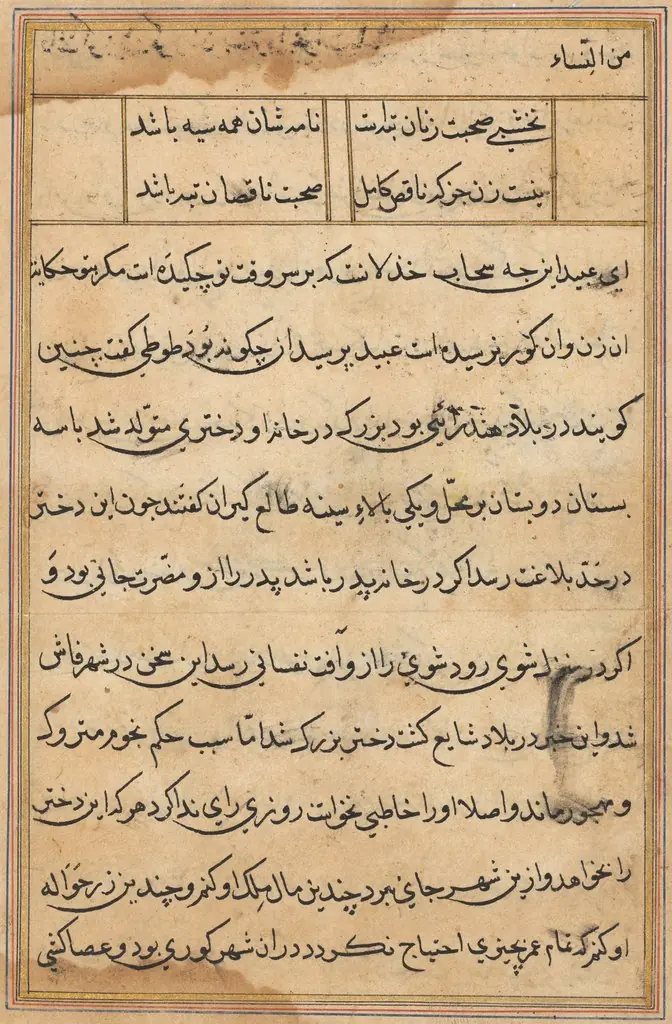 من النّساء
نخشبی صحبت زنان تبه است نامه شان همه سیه باشد
نیست زن جز که ناقص کامل صحبت ناقصان تبه باشد
ای عبید این چه سحاب خذلانست که بر سر وقت تو چکیده است مکر بتو حکایت
ان زن وان کور نرسیده است عبید پرسید از چکونه بُود طوطی کفت چنین
کویند در بلاد هند رائی بود بزرک در خانه او دختری متولّد شد با سه
بستان دو بستان بر محلّ و یکی بالاءِ سینه طالع کیران کفتند جون این دختر
در حَدّ بلاغت رسد اکر در خانه پدر باشد پدر را از و مضّرت جانی بود وَ
اکر در منزل شوی رود شوی را از و آفت نفسانی رسد این سخن در شهر فاش
شد و این خبر در بلاد شایع کشت دختر بزرک شد امّا سبب حکم نجوم متروک
و مهجور ماند و اصلا او را خاطبی نخواست روزی رای ندا کرد هر که این دختر
را بخواهد و از ین شهر جای ببرد چندین مال ملِک او کنم و چندین زر حَوَاله
او کنم که تمام عمر بچیزی احتیاج نکردد در ان شهر کوری بود و عصا کشی